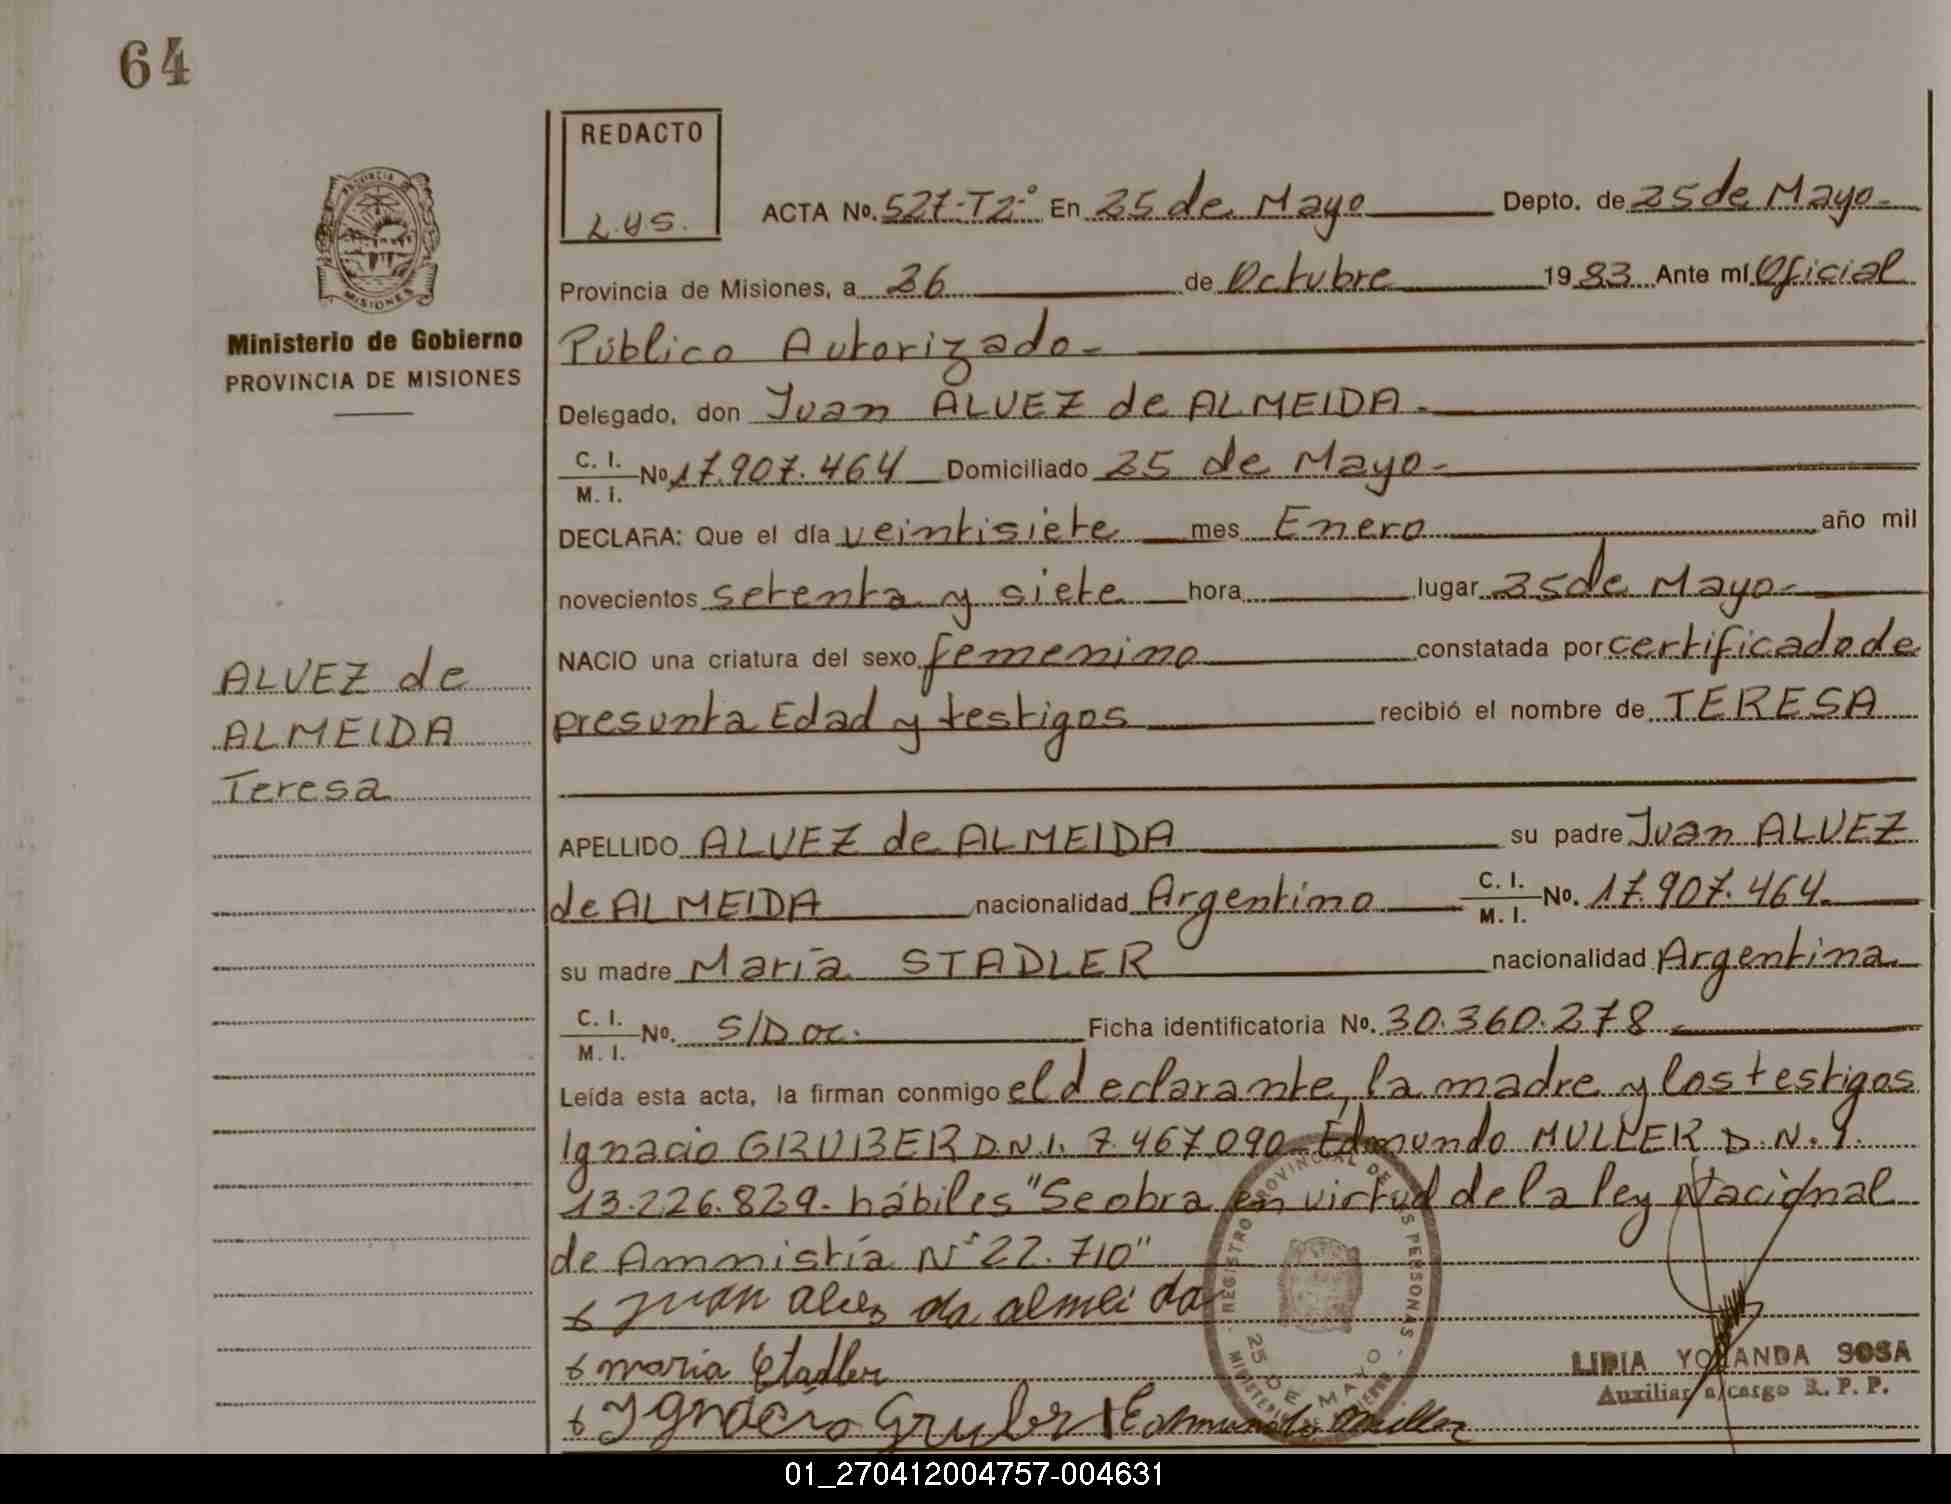 64
REDACTO
L.Y.S.
ACTA No. 527-T2-° En 25 de Mayo Depto. de 25 de Mayo-
Provincia de Misiones, a 26 de Octubre 1983 Ante mí Oficial
Público Autorizado-
Delegado, don Juan ALVEZ de ALMEIDA-
C. I. / M. I. No 17.907.464 Domiciliado 25 de Mayo-
DECLARA: Que el día veintisiete mes Enero año mil
novecientos setenta y siete hora lugar 25 de Mayo-
NACIO una criatura del sexo femenino constatada por certificado de
presunta Edad y testigos recibió el nombre de TERESA
APELLIDO ALVEZ de ALMEIDA su padre Juan ALVEZ
de ALMEIDA nacionalidad Argentino C. I. / M. I. No. 17.907.464.
su madre María STADLER nacionalidad Argentina
C. I. / M. I. No. S/Doc. Ficha identificatoria No. 30.360.278-
Leída esta acta, la firman conmigo el declarante, la madre y los testigos
Ignacio GRUBER D.N.I. 7.467.090- Edmundo MULLER D.N.I.
13.226.829- hábiles "Se obra en virtud de la ley Nacional
de Amnistía N° 22.710"
x Juan alves da almeida
x maria Stadler
x Ignacio Gruber x Edmundo Muller
REGISTRO PROVINCIAL DE LAS PERSONAS
25 DE MAYO
LIDIA YOLANDA SOSA
Auxiliar a/cargo R. P. P.
PROVINCIA DE
MISIONES
Ministerio de Gobierno
PROVINCIA DE MISIONES
ALVEZ de
ALMEIDA
Teresa
01_270412004757-004631